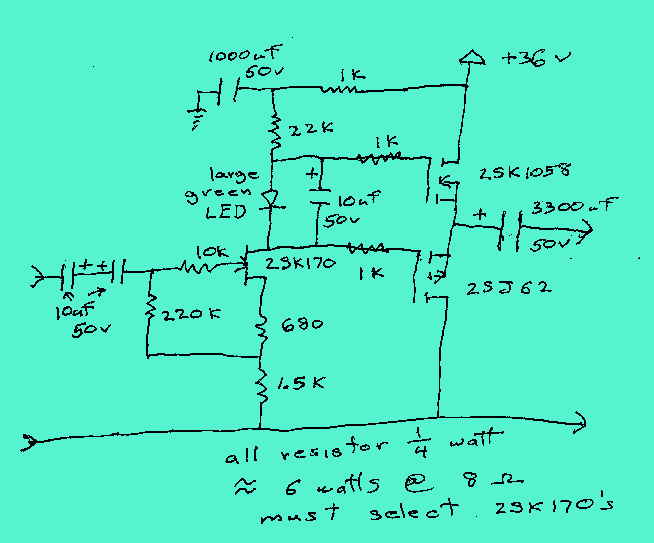 1000uF
50v
1K
+36v
22K
1K
2SK1058
large
green
LED
+
10uF
50v
+
3300uF
50v
10K
2SK170
1K
2SJ62
+ +
10uF
50v
220K
680
1.5K
all resistor 1/4 watt
≈ 6 watts @ 8 Ω
must select 2SK170's